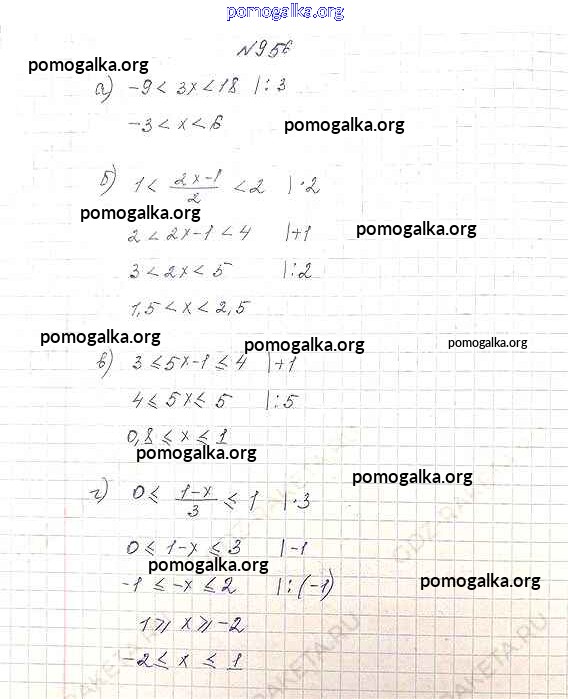 pomogalka.org
№956
pomogalka.org
а) -9 < 3x < 18 |:3
-3 < x < 6
pomogalka.org
б) 1 < (2x-1)/2 < 2 |·2
pomogalka.org
2 < 2x-1 < 4 |+1
pomogalka.org
3 < 2x < 5 |:2
1,5 < x < 2,5
pomogalka.org
pomogalka.org
pomogalka.org
в) 3 ≤ 5x-1 ≤ 4 |+1
4 ≤ 5x ≤ 5 |:5
0,8 ≤ x ≤ 1
pomogalka.org
pomogalka.org
г) 0 ≤ (1-x)/3 ≤ 1 |·3
GDZ-RAKETA.RU
0 ≤ 1-x ≤ 3 |-1
pomogalka.org
pomogalka.org
-1 ≤ -x ≤ 2 |:(-1)
1 ⩾ x ⩾ -2
-2 ≤ x ≤ 1